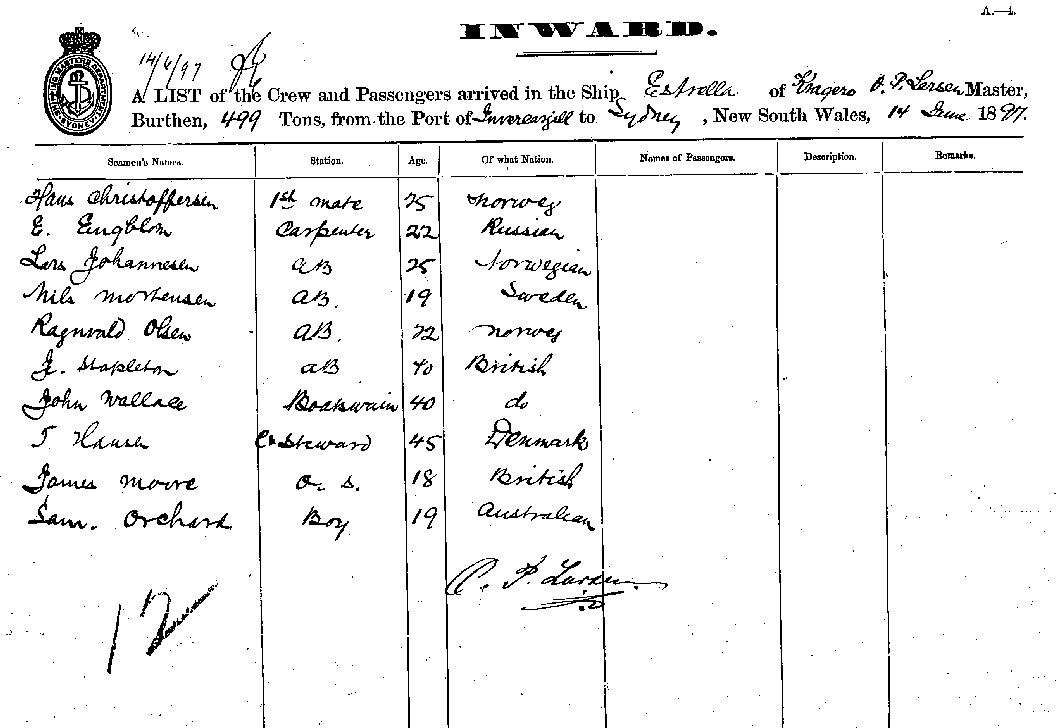 A.—4.
INWARD.
14/6/97
A LIST of the Crew and Passengers arrived in the Ship Estrella of Kragero O. P. Larsen Master,
Burthen, 499 Tons, from the Port of Invercargill to Sydney, New South Wales, 14 June 1897.
Seamen's Names. Station. Age. Of what Nation. Names of Passengers. Description. Remarks.
Hans Christoffersen 1st mate 25 Norweg
E. Engblom Carpenter 22 Russian
Lors Johannesen AB 25 Norwegian
Nils Mortensen AB. 19 Sweden
Ragnvald Olsen AB. 22 Norweg
J. Stapleton AB 40 British
John Wallace Boatswain 40 do
J Hansen Steward 45 Denmark
James Moore O. S. 18 British
Sam. Orchard Boy 19 Australian
O. P. Larsen
12